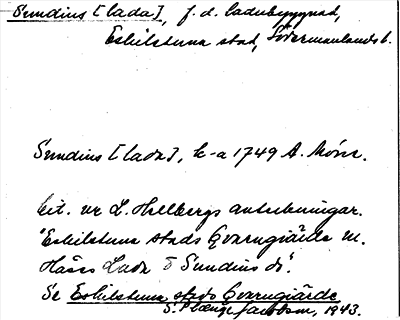 Sundius [lada], f.d. ladubyggnad,
Eskilstuna stad, Södermanlands l.
Sundius [lada], k-a 1749 A. Mörn.
Cit. ur L. Hellbergs anteckningar.
"Eskilstuna stads Qvarngiärde m.
Hans Lada ō Sundius do".
Se Eskilstuna stads Qvarngiärde
S. Jacobson, 1943.